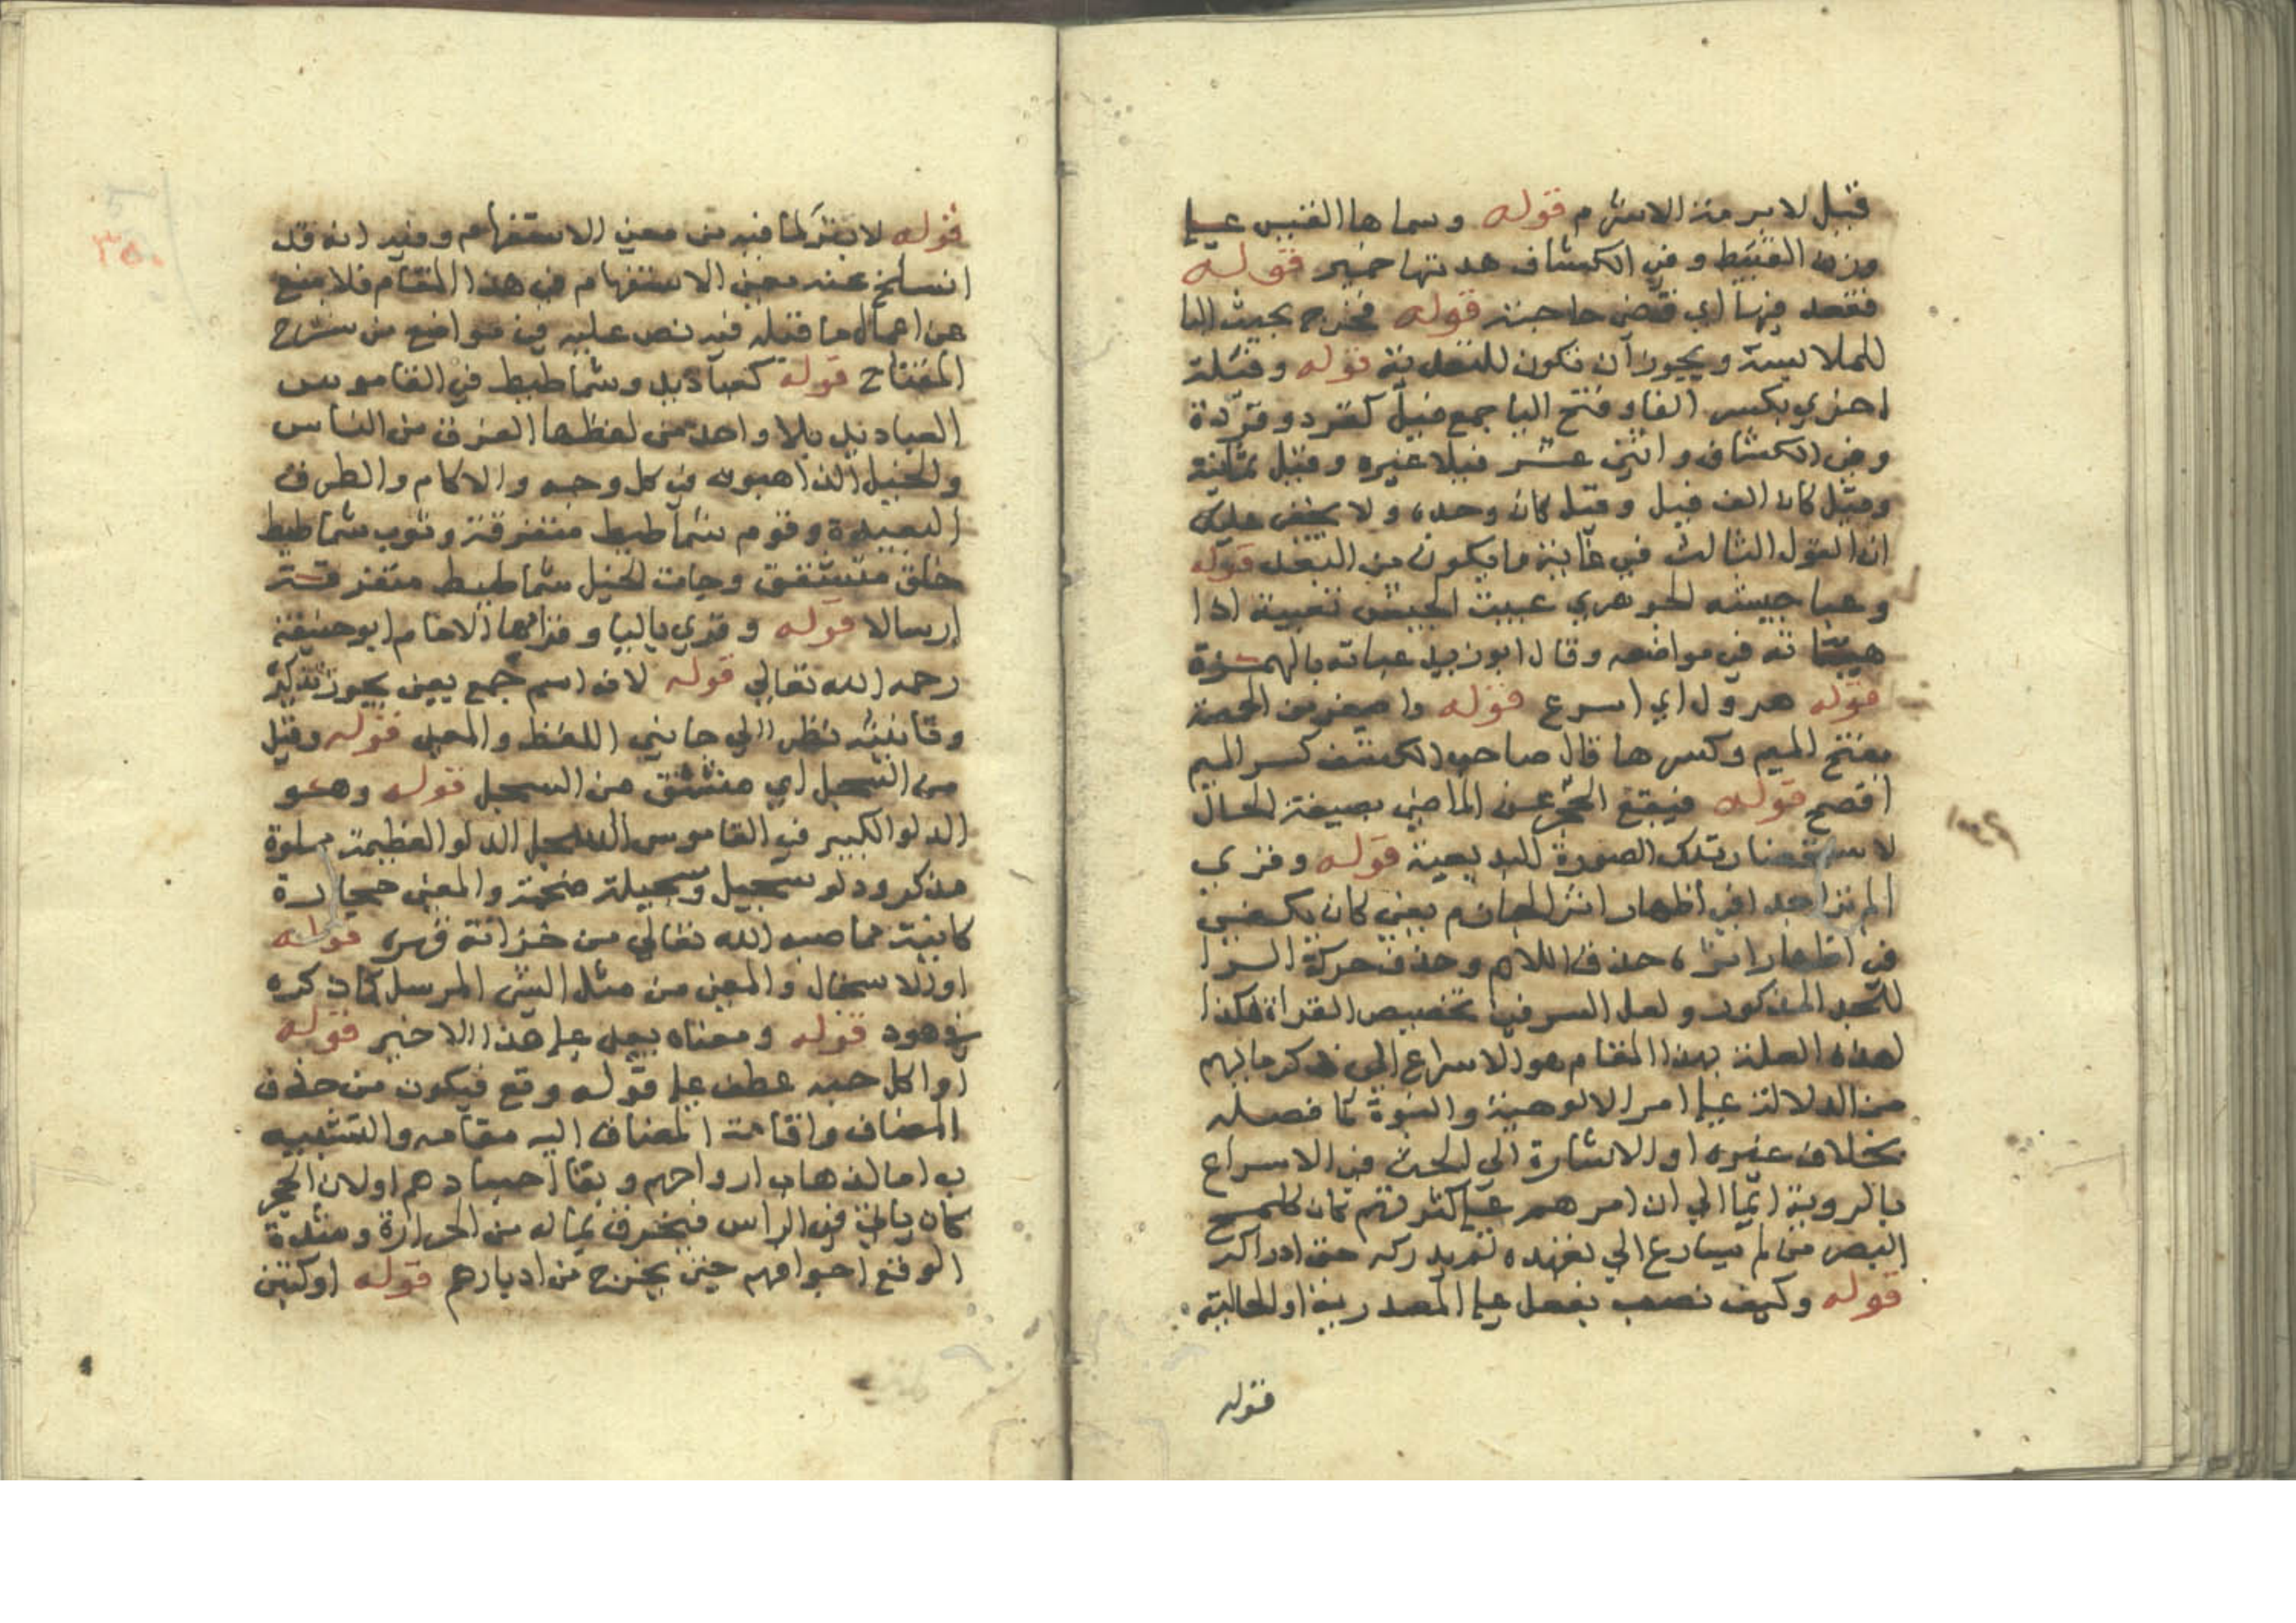 قيل لابرهة الاشرم قوله وسماها القليس علي
وزن القبيط وفي الكشاف هدمتها حمير قوله
فقعد فيها اي قضي حاجته قوله فخرج بجيشه البا
للملابسة ويجوز ان تكون للتعدية قوله وفيلة
اخري بكسر الفا وفتح اليا جمع فيل كقرد وقردة
وفي الكشاف واثني عشر فيلا غيره وقيل ثمانية
وقيل كان الف فيل وقيل كان وحده ولا يخفي عليك
ان القول الثالث في غاية ما يكون من البعد قوله
وعبا جيشه الجوهري عبيت الجيش تعبية اذا
هيئته في مواضعه وقال ابو زيد عباته بالهمزة
قوله هرول اي اسرع قوله واصغر من الحمصة
بفتح الميم وكسرها قال صاحب الكشف كسر الميم
افصح قوله فيقع الخبر عن الماضي بصيغة الحال
لاستحضار تلك الصورة البديعة قوله وقري
الم تر جدا في اظهار اثر الجازم يعني كان يكفي
في اظهار اثره حذف اللام وحذف حركة الرا
للجد المذكور ولعل السر في تخصيص القراة هكذا
لهذه العلة بهذا المقام هو الاسراع الي ذكر ما يهم
من الدلالة علي امر الالوهية والنبوة كما فصله
بخلاف غيره او الاشارة الي الحث في الاسراع
بالروية ايما الي ان امرهم علي كثرتهم كان كلمح
البصر من لم يسارع الي تعهده لم يدركه حق ادراكه
قوله وكيف نصب بفعل علي المصدرية او الحالية
قوله
قوله لا بتر لما فيه من معني الاستفهام وفيه انه قد
انسلخ عنه معني الاستفهام في هذا المقام فلا منع
عن اعمال ما قبله فيه نص عليه في مواضع من شرح
المفتاح قوله كعباديد وشماطيط في القاموس
العباديد بلا واحد من لفظها الفرق من الناس
والخيل الذاهبون في كل وجه والاكام والطرق
البعيدة وقوم شماطيط متفرقة وثوب شماطيط
خلق متشقق وجات الخيل شماطيط متفرقة
ارسالا قوله وقري باليا وقراها الامام ابو حنيفة
رحمه الله تعالي قوله لانه اسم جمع يعني يجوز تذكيره
وتانيثه نظرا الي جانبي اللفظ والمعني قوله وقيل
من السجل اي مشتق من السجل قوله وهو
الدلو الكبير في القاموس السجل الدلو العظيمة مملوة
مذكر ودلو سجيل وسجيلة ضخمة والمعني حجارة
كاينة مما صبه الله تعالي من خزانة قهره قوله
او الاسجال والمعني من مثل الشي المرسل كما ذكره
في هود قوله ومعناه يعني علي هذا الاخير قوله
او اكل حبه عطف علي قوله وقع فيكون من حذف
المضاف واقامة المضاف اليه مقامه والتشبيه
به اما لذهاب ارواحهم وبقا اجسادهم او لان الحجر
كان ياتي في الراس فيخرق بماله من الحرارة وشدة
الوقع اجوافهم حتي يخرج من ادبارهم قوله او كتبن
٣٥٠